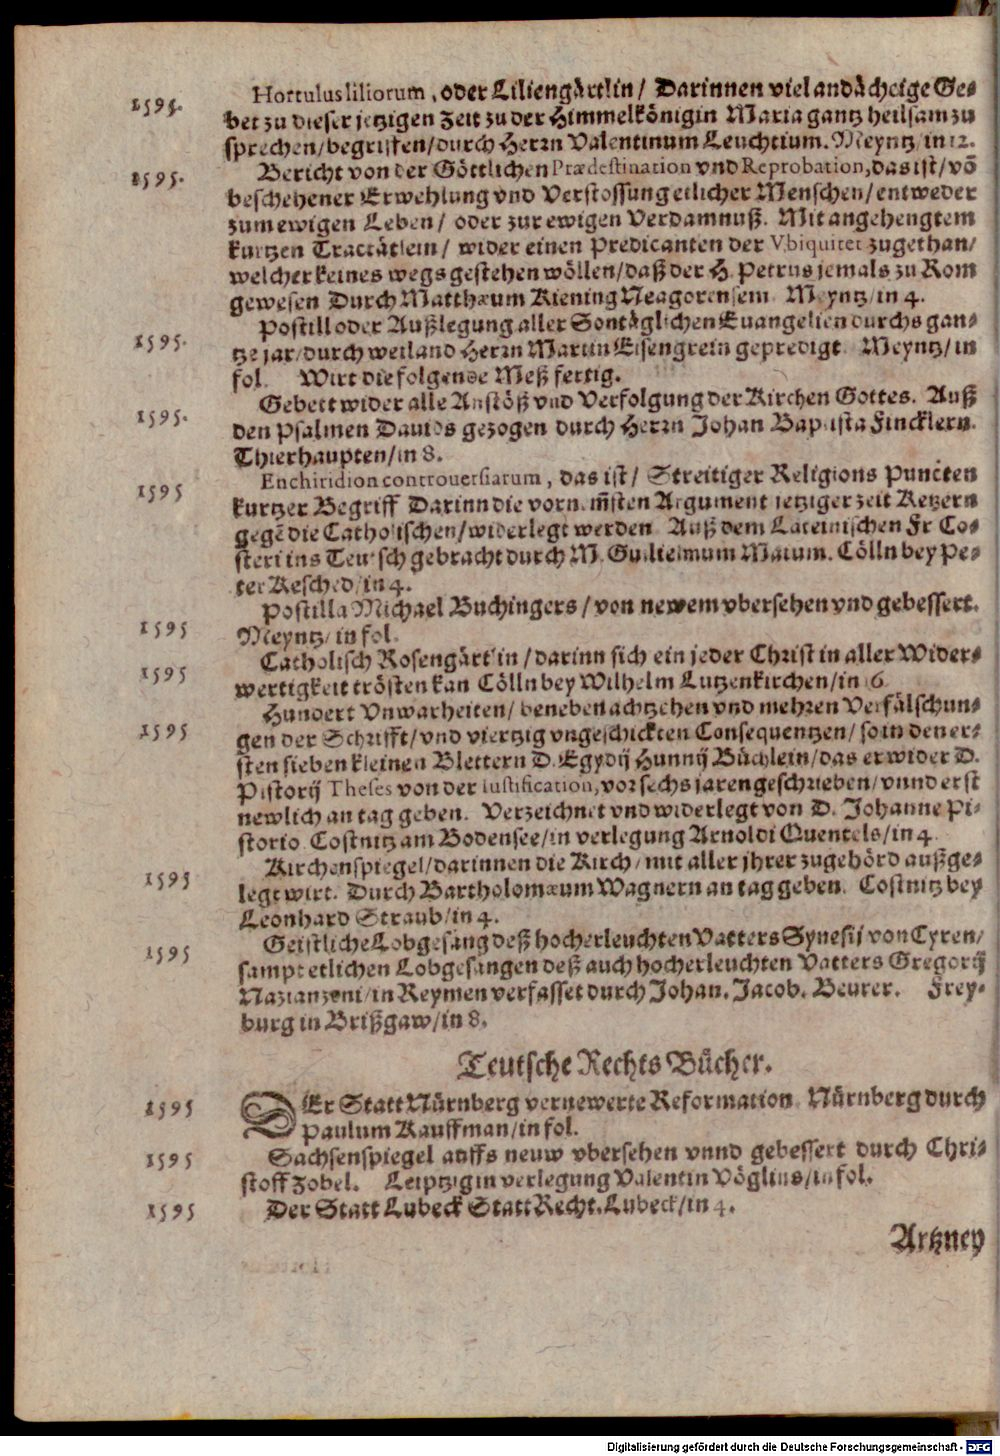 1595. Hortulus liliorum, oder Liliengärtlin/ Darinnen viel andächeige Ge-
bet zu dieser jetzigen Zeit zu der Himmelkönigin Maria gantz heilsam zu
sprechen/ begriffen/ durch Herrn Valentinum Leuchtium. Meyntz/ in 12.
1595. Bericht von der Göttlichen Prædestination vnd Reprobation, das ist/ võ
beschehener Erwehlung vnd Verstossung etlicher Menschen/ entweder
zum ewigen Leben/ oder zur ewigen Verdamnuß. Mit angehengtem
kurtzen Tractätlein/ wider einen Predicanten der Vbiquitet zugethan/
welcher keines wegs gestehen wöllen/ daß der H. Petrus jemals zu Rom
gewesen Durch Matthæum Kiening Neagorensem. Meyntz/ in 4.
1595. Postill oder Außlegung aller Sontäglichen Euangelien durchs gan-
tze jar/ durch weiland Herrn Martin Eisengrein gepredigt. Meyntz/ in
fol. Wirt die folgende Meß fertig.
1595. Gebett wider alle Anstöß vnd Verfolgung der Kirchen Gottes. Auß
den Psalmen Dauids gezogen durch Herrn Johan Baptista Fincklern.
Thierhaupten/ in 8.
1595 Enchiridion controuersiarum, das ist/ Streitiger Religions Puncten
kurtzer Begriff Darinn die vornem̃sten Argument jetziger zeit Ketzern
gegẽ die Catholischen/ widerlegt werden. Auß dem Lateinischen Fr Co-
steri ins Teutsch gebracht durch M. Guilielmum Maium. Cölln bey Pe-
ter Kesched/ in 4.
Postilla Michael Buchingers/ von newem vbersehen vnd gebessert.
1595 Meyntz/ in fol.
1595 Catholisch Rosengärtlin/ darinn sich ein jeder Christ in aller Wider-
wertigkeit trösten kan Cölln bey Wilhelm Lutzenkirchen/ in 16
1595 Hundert Vnwarheiten/ beneben achtzehen vnd mehren Verfälschun-
gen der Schrifft/ vnd viertzig vngeschickten Consequentzen/ so in den er-
sten sieben kleinen Blettern D. Egydij Hunnij Büchlein/ das er wider D.
Pistorij Theses von der Iustification, vor sechs jaren geschrieben/ vnnd erst
newlich an tag geben. Verzeichnet vnd widerlegt von D. Johanne Pi-
storio. Costnitz am Bodensee/ in verlegung Arnoldi Quentels/ in 4.
1595 Kirchenspiegel/ darinnen die Kirch/ mit aller jhrer zugehörd außge-
legt wirt. Durch Bartholomæum Wagnern an tag geben. Costnitz bey
Leonhard Straub/ in 4.
1595 Geistliche Lobgesäng deß hocherleuchten Vatters Synesij von Cyren/
sampt etlichen Lobgesangen deß auch hocherleuchten Vatters Gregorij
Nazianzeni/ in Reymen verfasset durch Johan. Jacob. Beurer. Frey-
burg in Brißgaw/ in 8.
Teutsche Rechts Bücher.
1595 DEr Statt Nürnberg vernewerte Reformation. Nürnberg durch
Paulum Kauffman/ in fol.
1595 Sachsenspiegel auffs neuw vbersehen vnnd gebessert durch Chri-
stoff Zobel. Leiptzig in verlegung Valentin Vöglins/ in fol.
1595 Der Statt Lubeck Statt Recht. Lubeck/ in 4.
Artzney
Digitalisierung gefördert durch die Deutsche Forschungsgemeinschaft - DFG